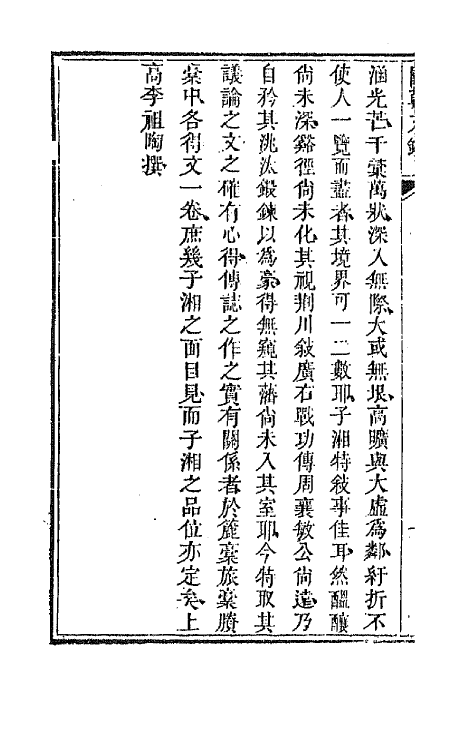 國朝文錄
涵光芒千彙萬狀深入無際大或無垠高曠與大虛爲鄰紆折不
使人一覽而盡者其境界可一二數耶子湘特敍事佳耳然醞釀
尙未深谿徑尙未化其視荆川敍廣右戰功傳周襄敏公尙遠乃
自矜其洮汰鍛鍊以爲豪得無窺其藩尙未入其室耶今特取其
議論之文之確有心得傳誌之作之實有關係者於簏稾旅稾賸
稾中各得文一卷庶幾子湘之面目見而子湘之品位亦定矣上
高李祖陶撰